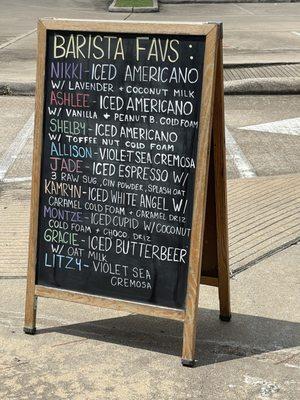 BARISTA FAVS:
NIKKI- ICED AMERICANO
W/ LAVENDER + COCONUT MILK
ASHLEE- ICED AMERICANO
W/ VANILLA + PEANUT B. COLD FOAM
SHELBY- ICED AMERICANO
W/ TOFFEE NUT COLD FOAM
ALLISON- VIOLET SEA CREMOSA
JADE- ICED ESPRESSO W/
3 RAW SUG, CIN POWDER, SPLASH OAT
KAMRYN- ICED WHITE ANGEL W/
CARAMEL COLD FOAM + CARAMEL DRIZ
MONTZE- ICED CUPID W/ COCONUT
COLD FOAM + CHOCO. DRIZ
GRACIE- ICED BUTTERBEER
W/ OAT MILK
LITZY- VIOLET SEA
CREMOSA